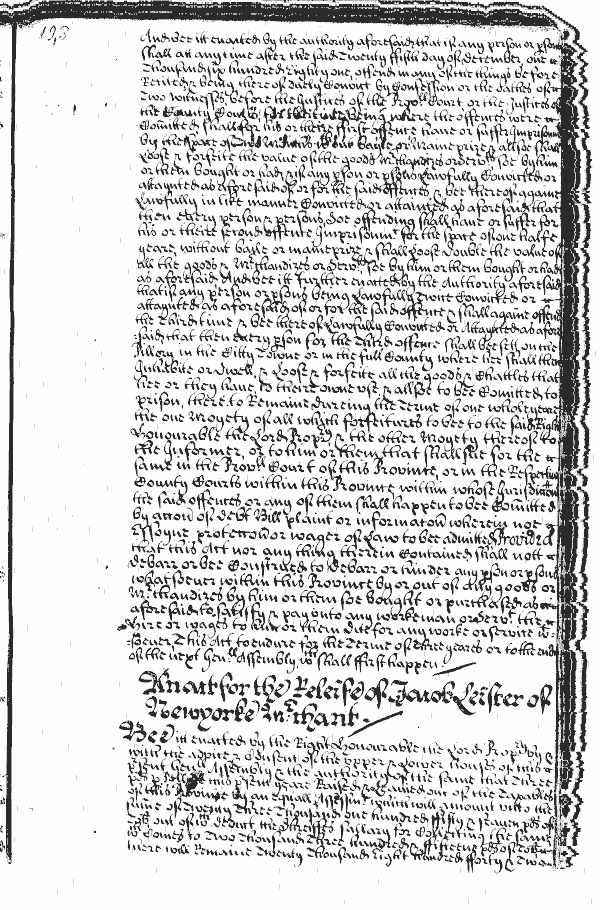 123
And bee itt enacted by the authority aforesaid that if any person or psons
shall att any time after the said Twenty fifth day of december one
Thousand six hundred Eighty one, offend in any of the things before
Recited & being there of duely Convict by Confession or the oathes of
Two witnesses, before the Justices of the Provll Court or the Justices of
the County Courts, where the offences were
Comitted shall for his or theire first offence have or suffer Imprisonmt
by the space of without bayle or Maineprize & allsoe shall
Loose & forfeite the value of the goods Mrchandizes or soe by him
or them bought or had; & if any pson or psons Lawfully Convicted or
attaynted as aforesaid of or for the said offences & bee thereof againe
Lawfully in like manner Convicted or attainted as aforesaid that
then every person & persons soe offending shall have or suffer for
his or theire second offence Imprisonmt for the space of one halfe
yeare, without bayle or maineprize & shall Loose double the value of
all the goods & Mrchandizes or soe by him or them bought or had
as aforesaid And bee itt further enacted by the Authority aforesaid
that if any person or psons being Lawfully twice Convicted or
attaynted as aforesaid of or for the said offence & shall againe offend
the Third time & bee thereof Lawfully Convicted or Attaynted as afore
said that then every pson for the Third offence shall bee sett on the
Pillory in the Citty Towne or in the full County where hee shall then
Inhabite or dwell, & Loose & forfeite all the goods & Chattles that
hee or they have, to theire owne use & allsoe to bee Comitted to
prison, there to Remaine dureing the Terme of one whole yeare
the one Moyety of all which forfeitures to bee to the said Right
Honourable the Lord Propry & the other Moyety thereof to
the Informer, or to him or them that shall sue for the
same in the Provll Court of this Province, or in the Respective
County Courts within this Province within whose Jurisdiction
the said offences or any of them shall happen to bee Comitted
by accon of debt Bill plaint or informacon wherein noe
Essoyne proteccon or wager of Law to bee admitted Provided
that this Act nor any thing therein Contained shall nott
debarr or bee Construed to debarr or hinder any pson or psons
whatsoever within this Province by or out of any goods or
Mrchandizes by him or them soe bought or purchased as
aforesaid to satisfy & pay unto any workeman or the
hire or wages to him or them due for any worke or service
soever, This Act to endure for the Terme of three years or to the end
of the next Genll Assembly, wch shall first happen
An act for the Releife of Jacob Leister of
Newyorke Mrchant.
Bee itt enacted by the Right Honourable the Lord Propry by &
with the advice & Consent of the upper & Lower houses of this
psent Genll Assembly & the authority of the same that
this psent yeare Raised & Leavied out of the Taxables
of this Province by an Equall Assessmt wch will amount unto the
summe of Twenty Three Thousand one hundred fifty & seaven pds of
Tobb out of wch deduct the Sheriffes Sallary for Collecting the same
wch Comes to Two Thousand Three hundred & fifteene pds of Tobb
there will Remaine Twenty Thousand Eight hundred fforty & Two